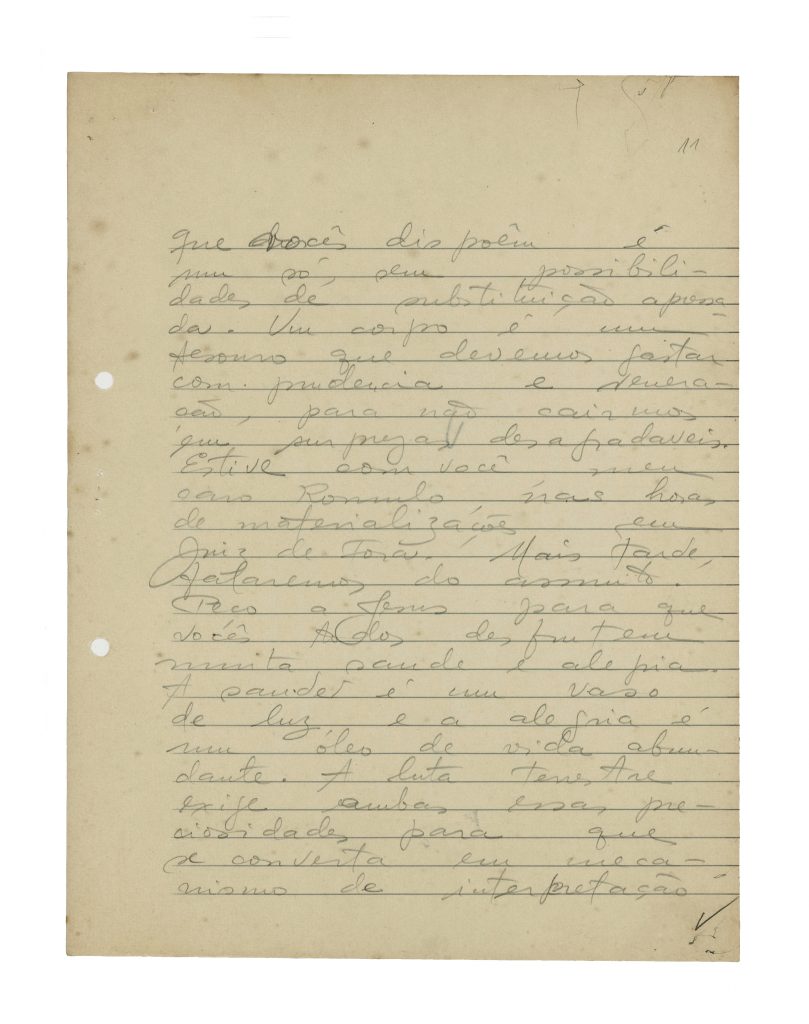 11
que vocês dispoêm é
um só, sem possibili-
dades de substituição apossa
da. Um corpo é um
tesouro que devemos gastar
com prudencia e venera-
cão, para não cairmos
em surprezas desagradaveis.
Estive com você meu
caro Romulo, nas horas
de materializações em
Juiz de Fora. Mais tarde,
fataremos do assunto.
Peco a Jesus para que
vocês todos desfrutem
muita saude e alegria.
A saude é um vaso
de luz e a alegria é
um óleo de vida abun-
dante. A luta terrestre
exige ambas essas pre-
ciosidades para que
se converta em meca-
nismo de interpretação